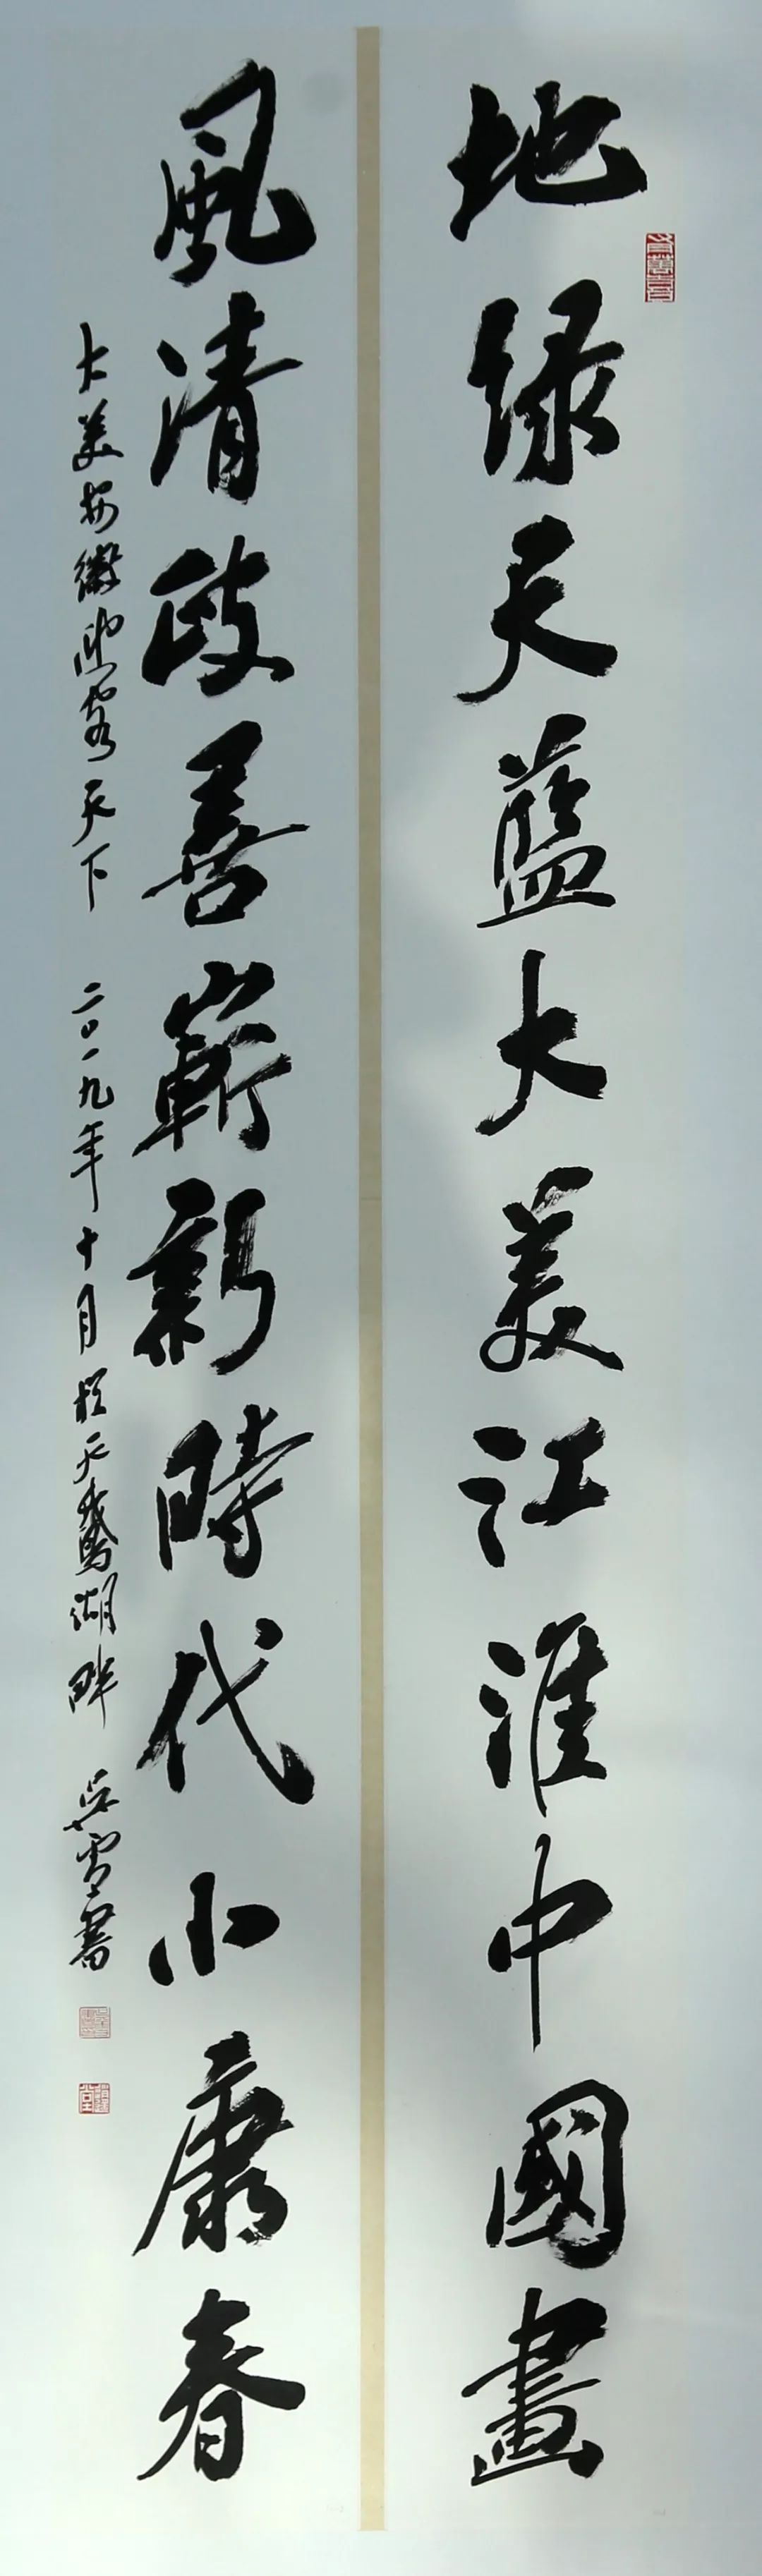 地绿天蓝大美江淮中國畫
風清政善嶄新時代小康春
大美安徽迎客天下 二〇一九年十月於天鵝湖畔 吴雪書